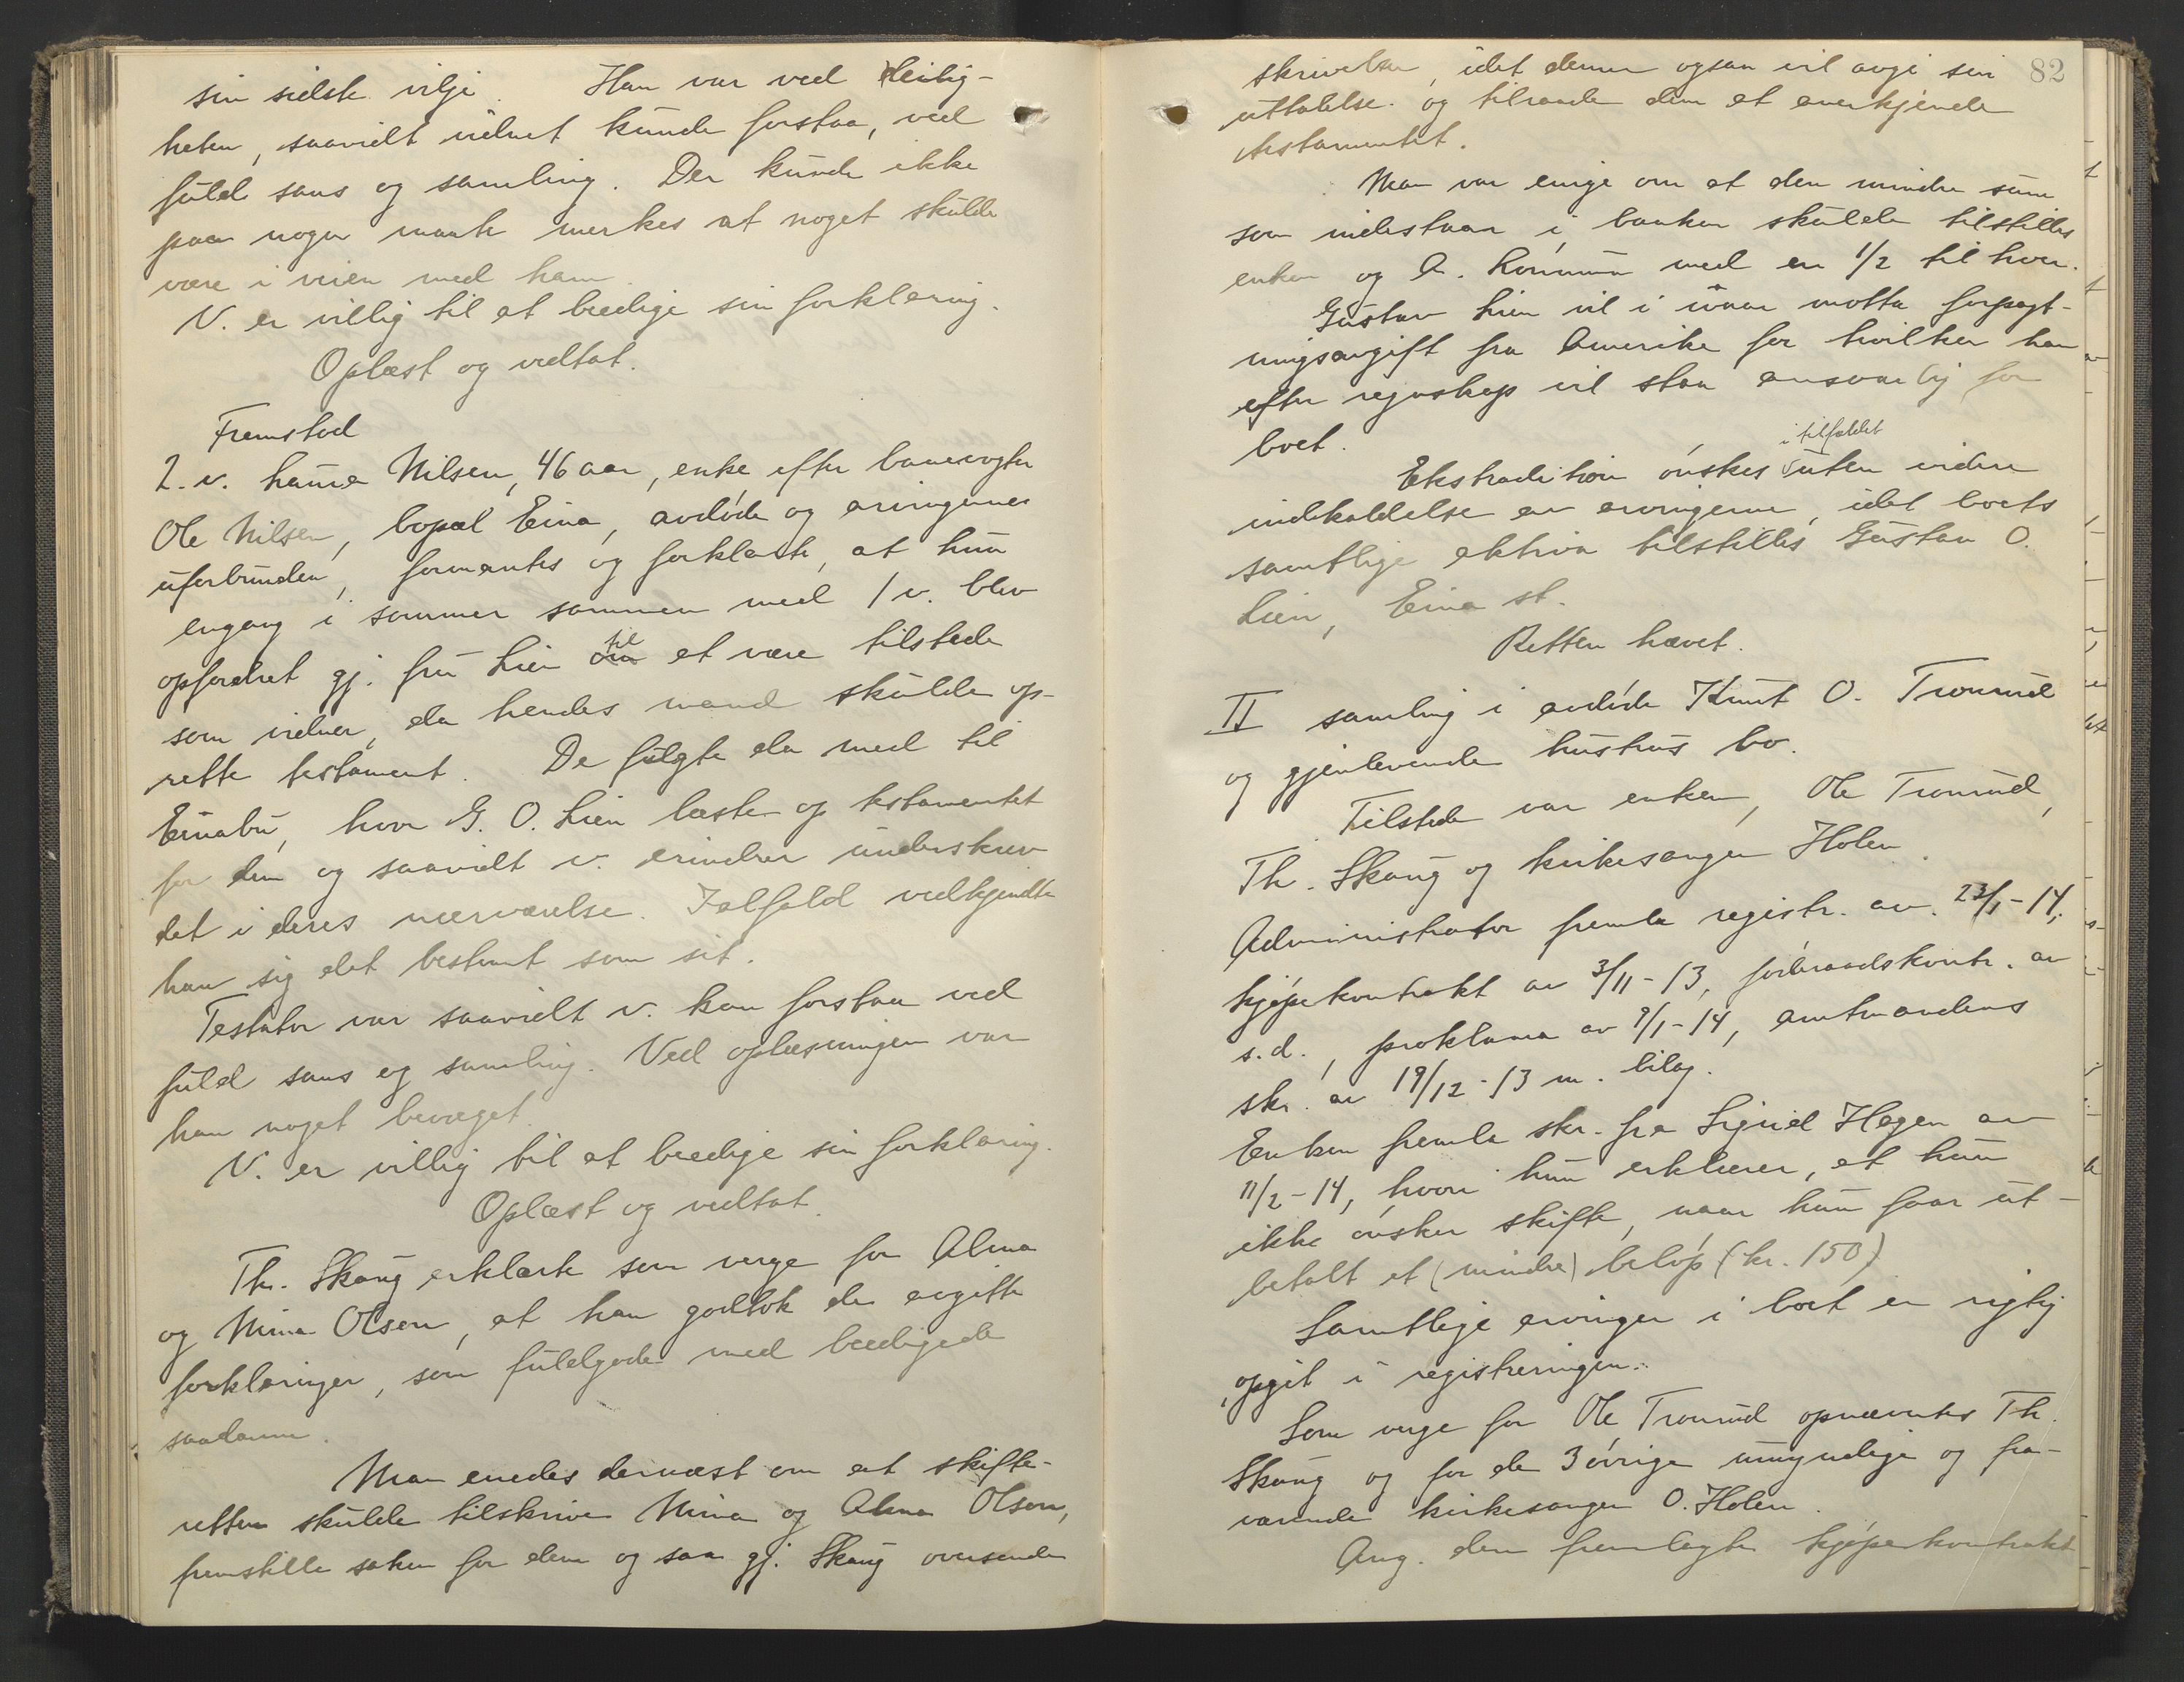 sin sidste vilje. Han var ved leilig-
heten, saavidt vidnet kunde forstaa, ved
fuld sans og samling. Der kunde ikke
paa nogen maate merkes at noget skulde
være i veien med ham.
V. er villig til at beedige sin forklaring.
Oplæst og vedtat.
Fremstod
2. v. Hanna Nilsen, 46 aar, enke efter banevogter
Ole Nilsen, bopæl Eina, avdøde og arvingerne
uforbunden, formantes og forklarte, at hun
engang i sommer sammen med 1 v. blev
opfordret gj. fru Lien om til at være tilstede
som vidner, da hendes mand skulde op-
rette testament. De fulgte da med til
Einabu, hvor G. O. Lien læste op testamentet
for dem og saavidt v. erindrer underskrev
det i deres nærværelse. Ialfald vedkjendte
han sig det bestemt som sit.
Testator var saavidt v. kan forstaa ved
fuld sans og samling. Ved oplæsningen var
han noget bevæget.
V. er villig til at beedige sin forklaring.
Oplæst og vedtat.
Th. Skaug erklærte som verge for Alma
og Mina Olsen, at han godtok de avgitte
forklaringer, som fuldgode med beedigede
saadanne.
Man enedes dernæst om at skifte-
retten skulde tilskrive Mina og Alma Olsen,
fremstille saken for dem og saa gj. Skaug oversende
82
skrivelsen, idet denne ogsaa vil avgi sin
uttalelse og tilraade dem at anerkjende
testamentet.
Man var enige om at den mindre sum
som indestaar i banken skulde tilstilles
enken og A. kommune med en 1/2 til hver.
Gustav Lien vil i vaar motta forpagt-
ningsavgift fra Amerika for hvilken han
efter regnskap vil staa ansvarlig for
boet.
i tilfældet
Ekstradition ønskes uten videre
indkaldelse av arvingerne, idet boets
samtlige aktiva tilstilles Gustav O.
Lien, Eina st.
Retten hævet.
II samling i avdøde Knut O. Tronrud
og gjenlevende hustrus bo.
Tilstede var enken, Ole Tronrud,
Th. Skaug og kirkesanger Holen.
Administrator fremla registr. av 23/1-14,
kjøpekontrakt av 3/11-13, forbraadskontr. av
s.d., proklama av 9/1-14, amtmandens
skr. av 19/12-13 m. bilag.
Enken fremla skr. fra Sigrid Hagen av
11/2-14, hvori hun erklærer, at hun
ikke ønsker skifte, naar hun faar ut-
betalt et (mindre) beløp (kr. 150)
Samtlige arvinger i boet er rigtig
opgit i registreringen.
Som verge for Ole Tronrud opnævntes Th.
Skaug og for de 3 øvrige umyndige og fra-
værende kirkesanger O. Holen.
Ang. den fremlagte kjøpekontrakt